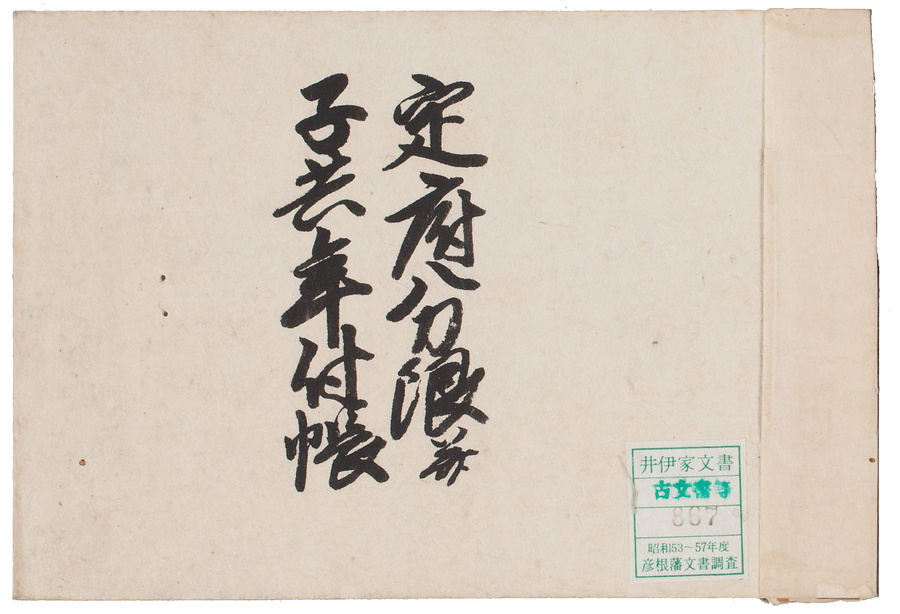 定府分限并
子共年付帳
井伊家文書
古文書等
867
昭和53~57年度
彦根藩文書調査